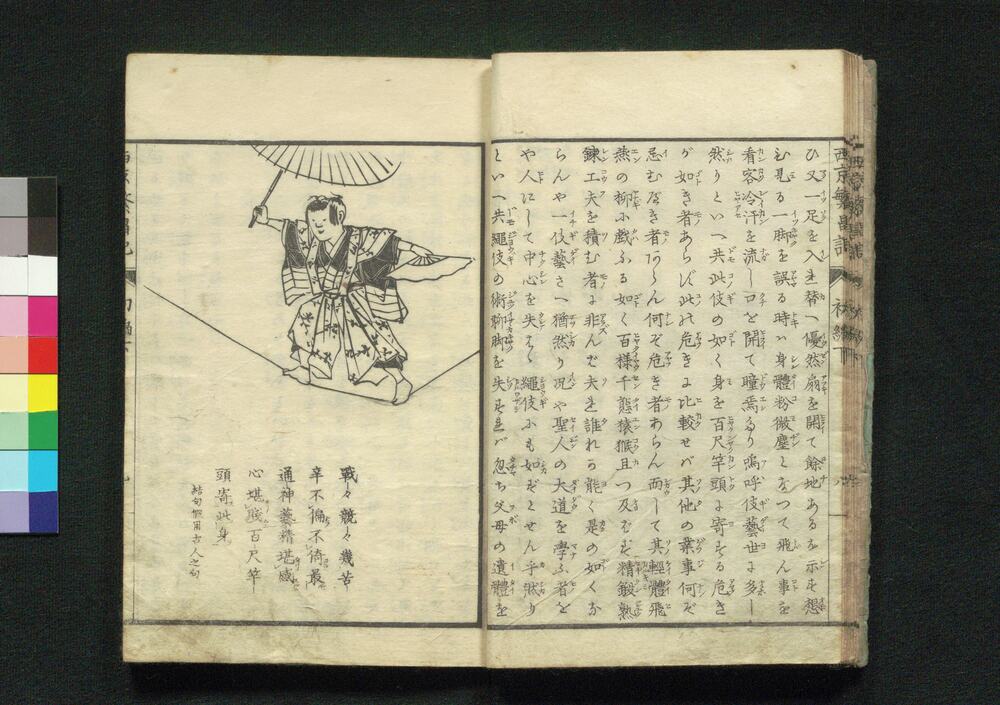 西京繁昌記 初編下
ひ又一足を入れ替へ優然扇を開て餘地あるを示す想
ひ見る一脚を誤る時ハ身體粉微塵となつて飛ん事を
看客冷汗を流し口を開て瞳焉たり嗚呼伎藝世に多し
然りといへ共此伎の如く身を百尺竿頭に寄する危き
が如き者あらば此れ危きに比較せバ其他の業事何ぞ
忌むべき者あらん何ぞ危き者あらん而して其輕體飛
燕の柳に戯ふる如く百様千態猿猴且つ及ばず精鍛熟
錬工夫を積む者に非んば夫れ誰れか能く是の如くな
らんや一伎藝さへ猶然り况や聖人の大道を學ふ者を
や人にして中心を失はゞ繩伎にも如ずとせん乎然り
といへ共繩伎の術聊脚を失すれバ忽ち父母の遺體を
戰々競々幾苦
辛不偏不倚最
通神藝精堪感
心堪感百尺竿
頭寄此身
結句假用古人之句